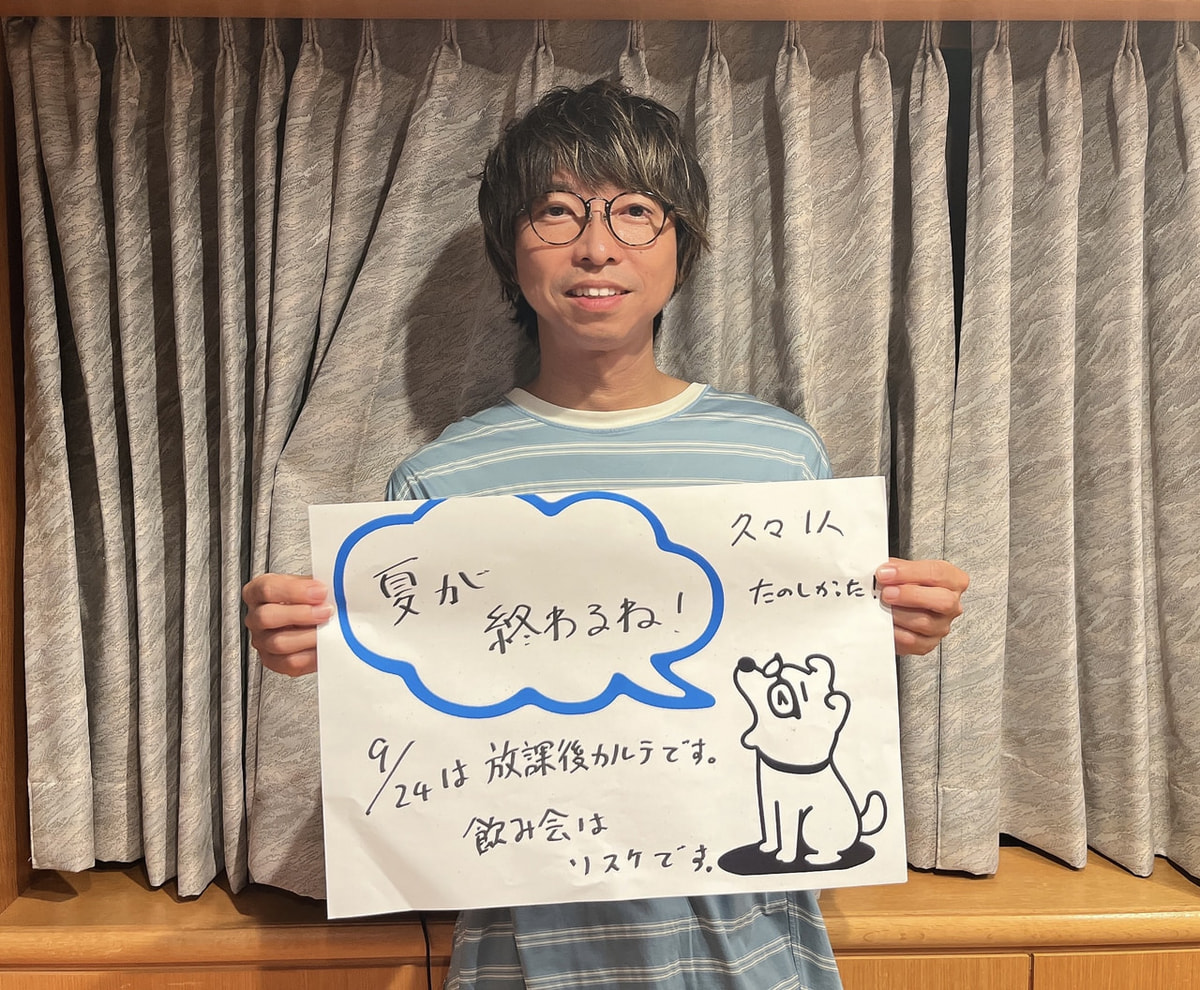 夏が
終わるね!
久々1人
たのしかった!
9/24は放課後カルテです。
飲み会は
リスケです。